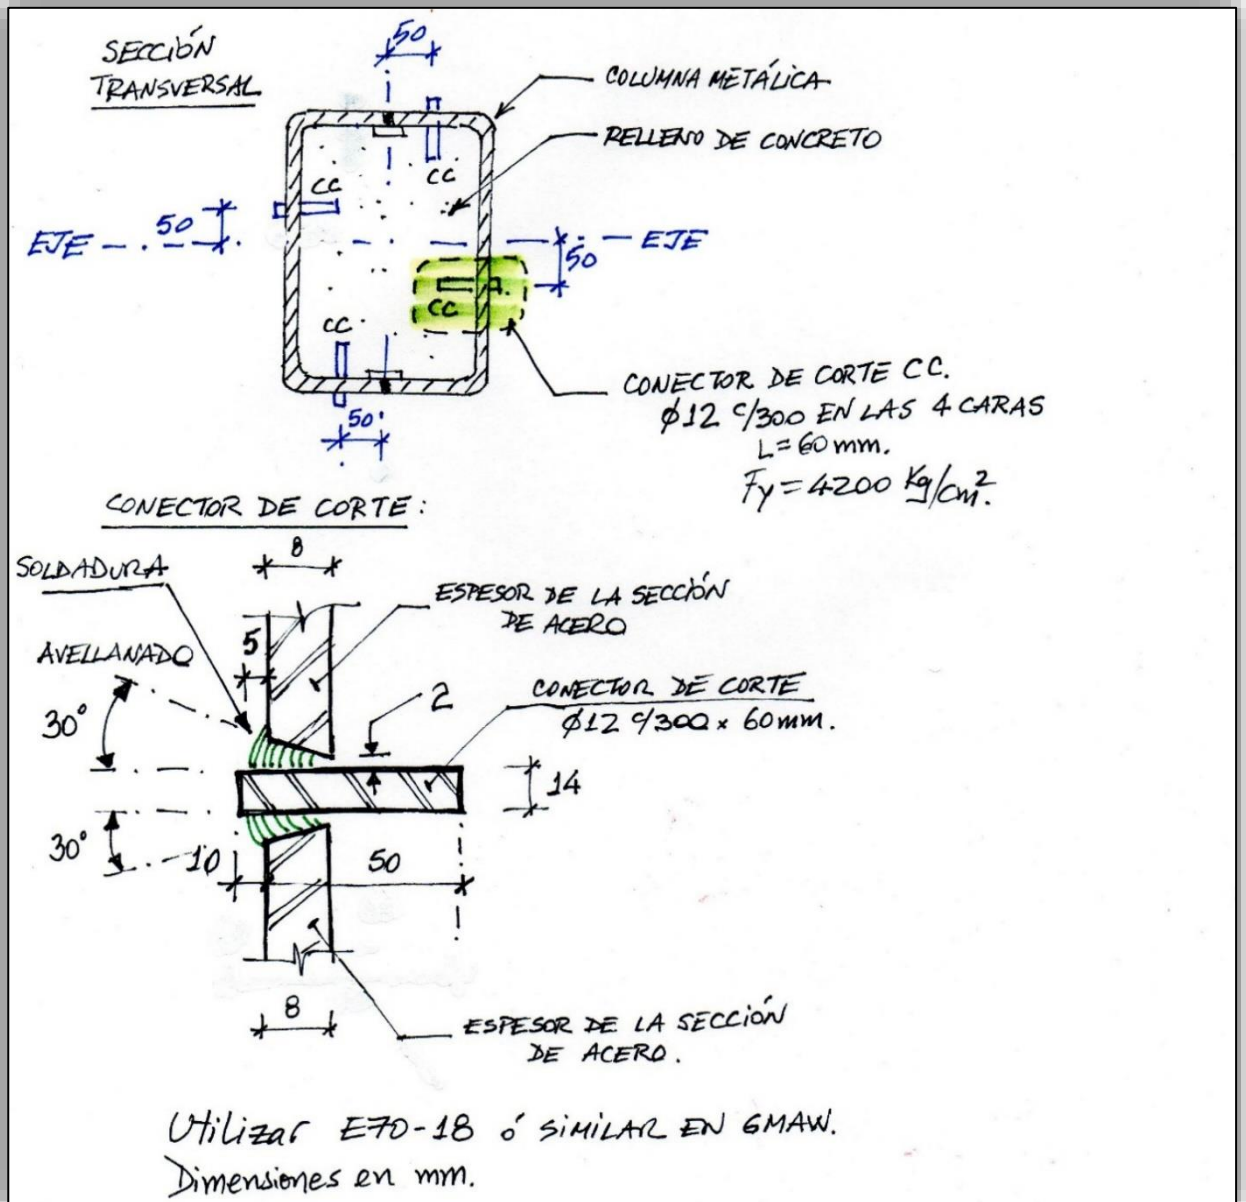 SECCIÓN
TRANSVERSAL
50
COLUMNA METÁLICA
RELLENO DE CONCRETO
CC
CC
50
EJE
EJE
50
CC
CC
50
CONECTOR DE CORTE CC.
ϕ12 c/300 EN LAS 4 CARAS
L=60mm.
Fy=4200 Kg/cm².
CONECTOR DE CORTE:
8
SOLDADURA
ESPESOR DE LA SECCIÓN
DE ACERO
5
AVELLANADO
2
CONECTOR DE CORTE
ϕ12 c/300 x 60mm.
30°
14
30°
10
50
8
ESPESOR DE LA SECCIÓN
DE ACERO.
Utilizar E70-18 ó SIMILAR EN GMAW.
Dimensiones en mm.